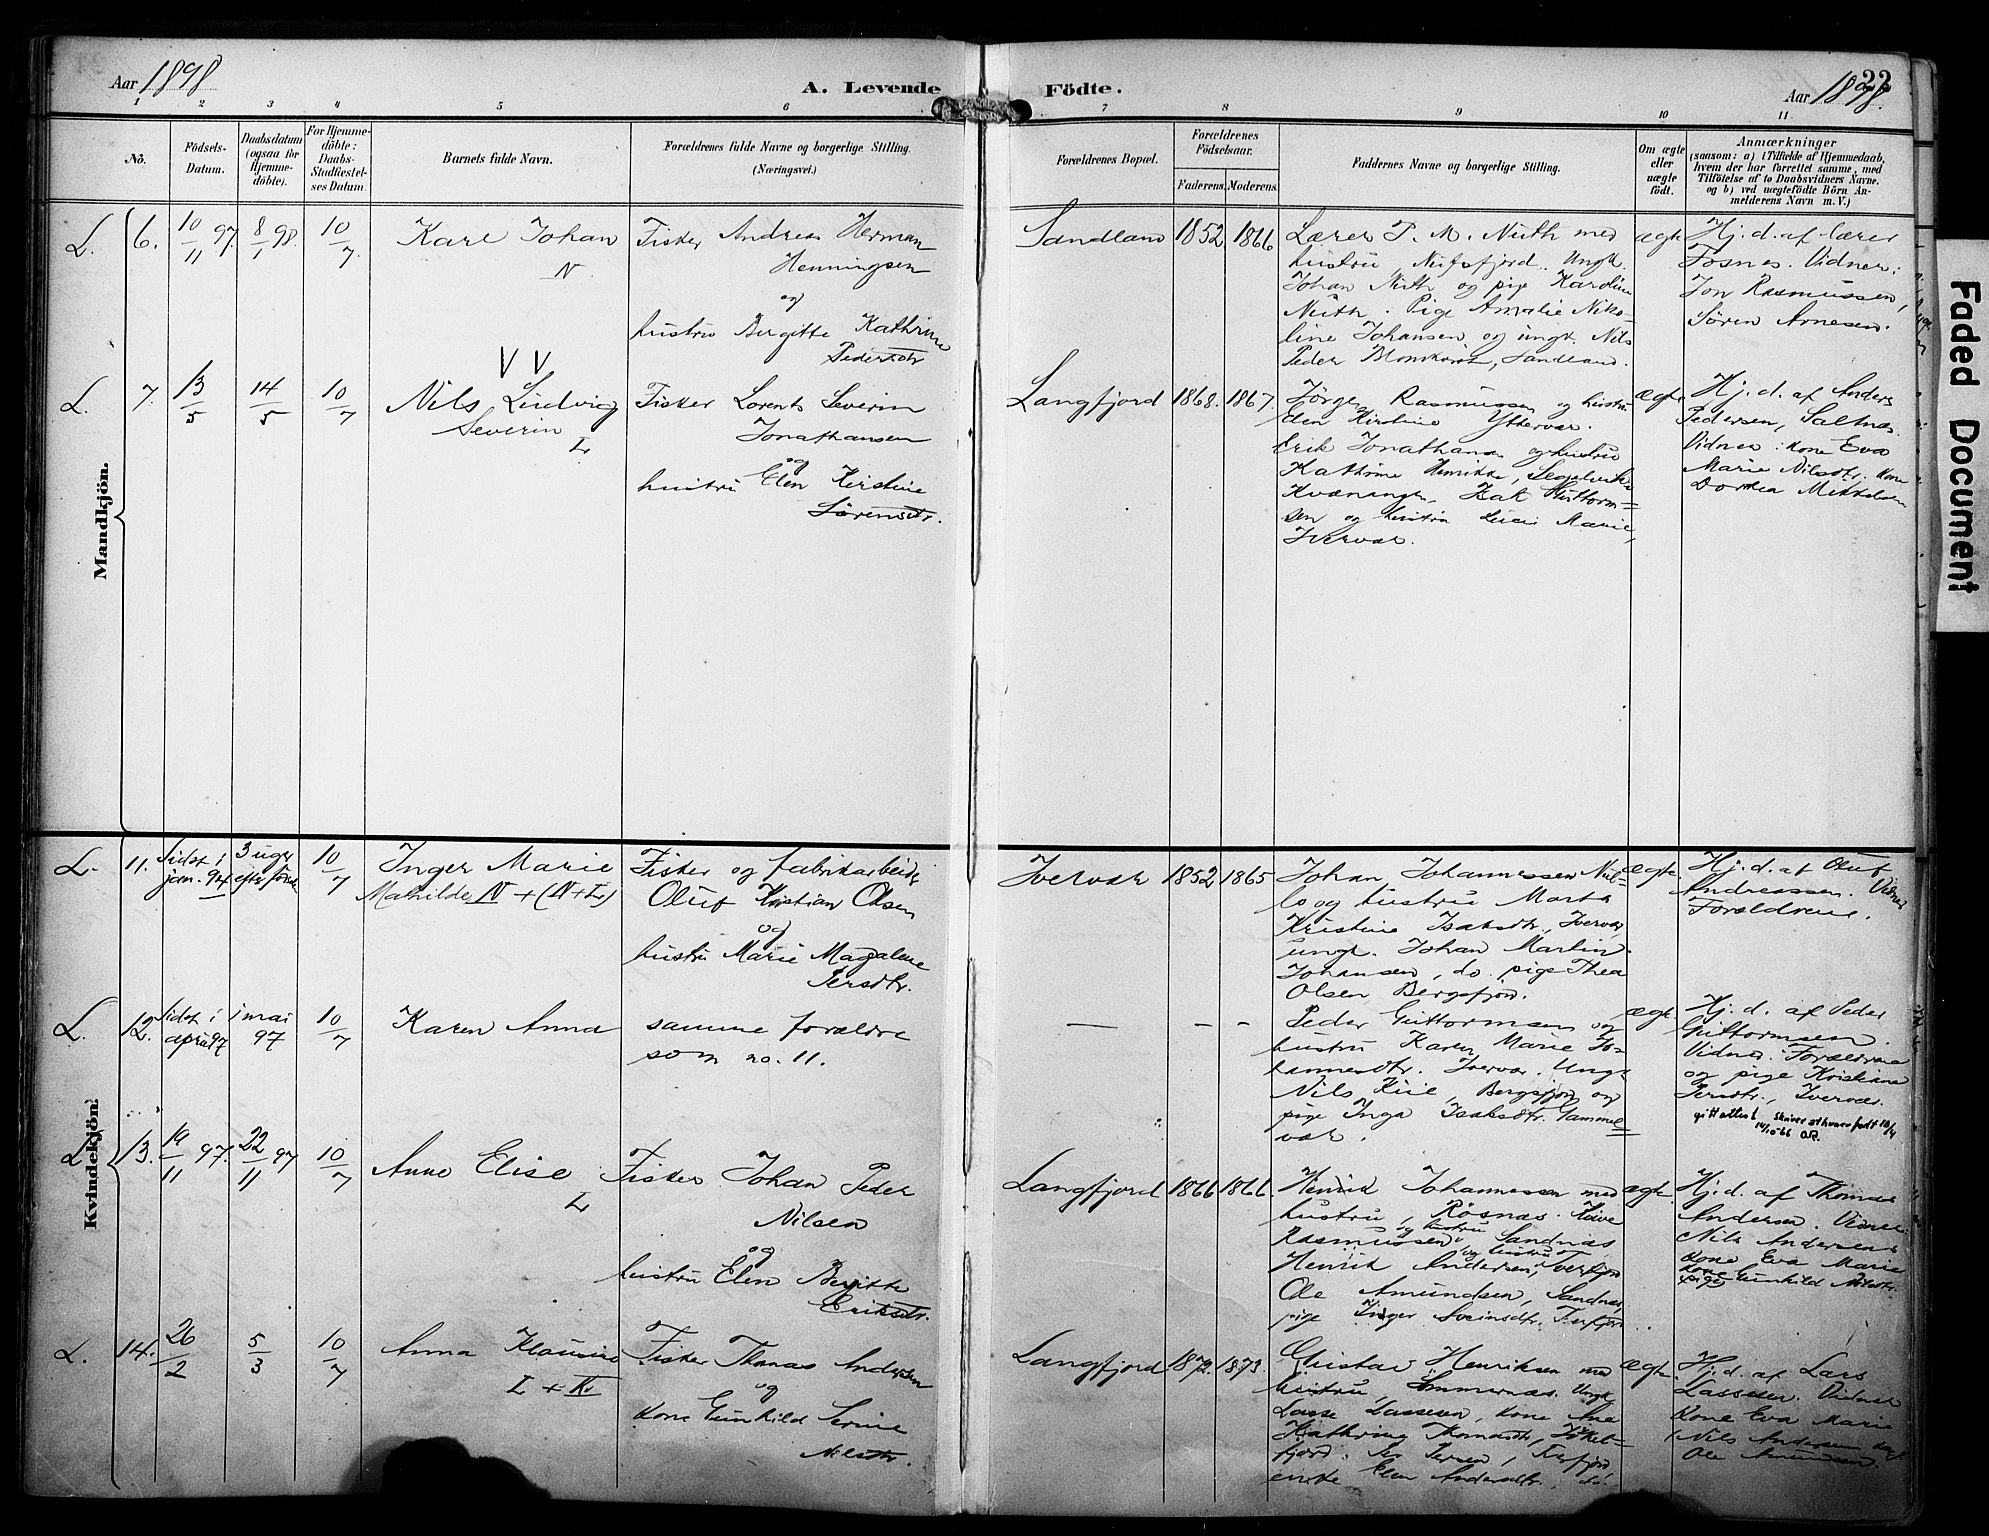 Aar 1898
A. Levende Födte.
Aar 1898.
22
1 2 3 4 5 6 7 8 9 10 11
No.
Födsels-
Datum.
Daabsdatum
(ogsaa for
Hjemme-
döbte).
For Hjemme-
döbte:
Daabs-
Stadfæstel-
ses Datum.
Barnets fulde Navn.
Forældrenes fulde Navne og borgerlige Stilling.
(Næringsvei.)
Forældrenes Bopæl.
Forældrenes
Födselsaar.
Faderens. Moderens.
Faddernes Navne og borgerlige Stilling.
Om ægte
eller
uægte
födt.
Anmærkninger
(saasom: a) i Tilfælde af Hjemmedaab,
hvem der har forrettet samme, med
Tilföielse af to Daabsvidners Navne.
og b) ved uægtefödte Börn An-
melderens Navn m. V.)
Mandkjön.
L. 6. 10/11 97. 8/1 98. 10/7
Karl Johan
N.
Fisker Andreas Herman
Henningsen
og
hustru Bergitte Kathrine
Pedersdtr
Sandland 1852 1866
Lærer P. M. Nuth med
hustru, Nufsfjord. Ungk.
Johan Nuth og pige Karoline
Nuth. Pige Amalie Niko-
line Johansen og ungk. Nils
Peder, Sandland.
ægte
Hj. d. af lærer
Fosnes. Vidner:
Jon Rasmussen,
Sören Arnesen.
L. 7. 13/5 14/5 10/7
V V
Nils Ludvig
Severin
L
Fisker Lorents Severin
Jonathansen
og
hustru Elen Kirstine
Sörensdtr.
Langfjord 1868. 1867.
Jörgen Rasmussen og hustru
Elen Kirstine Yttervær.
Erik Jonathans. og hustru
Kathrine Henrikke,
Kvænangen, Isak Guttorm-
sen og hustru Marie,
Ivervær.
ægte
Hj. d. af Anders
Pedersen, Saltnæs.
Vidner: kone Eva
Marie Nilsdtr. kone
Dorthea Mikkelsen
Kvindekjön.
L. 11. Sidst i jan. 94 3 uger efter föds. 10/7
Inger Marie
Mathilde N + (N+L)
Fisker og fabrikarbeider
Oluf Kristian Olsen
og
hustru Marie Magdalene
Persdtr.
Ivervær 1852 1865
Johan Johannessen
og hustru Marta
Kristine Isaksdtr., Ivervær,
ungk. Johan Martin
Johansen, do. pige Thea
Olsen Bergsfjord.
ægte
Hj. d. af Oluf
Andreassen. Vidner
Forældrene.
L. 12. Sidst i april 97 i mai 97 10/7
Karen Anna
samme forældre
som no. 11.
— - -
Peder Guttormsen og
hustru Karen Marie Jo-
hannesdtr. Ivervær. Ungk.
Nils Kiil, Bergsfjord og
pige Inga Isaksdtr. Gammel-
vær.
ægte
Hj. d. af Peder
Guttormsen.
Vidner: Forældrene
og pige Kristiane
Persdtr., Ivervær.
L. 13. 19/11 97. 22/11 97 10/7
Anne Elise
L
Fisker Johan Peder
Nilsen
og
hustru Elen Bergitte
Eriksdtr.
Langfjord 1866 1866.
Henrik Johannessen med
hustru, Rösnæs.
Rasmussen og hustru Sandnæs
Henrik Andersen, og hustru
Ole Amundsen, Sandnæs,
pige Inger Sveinsdtr.
ægte
Hj. d. af Thomas
Andersen. Vidner
Nils Andersens
kone Eva Marie
pige Gunhild Nilsdtr.
L. 14. 26/2 5/3 10/7
Anna Klausine
L + K.
Fisker Thomas Andersen
og
kone Gunhild Serine
Nilsdtr.
Langfjord 1872. 1873.
Gustav Henriksen med
hustru, Sommernæs. Ungk.
Lasse Lassesen, kone Ane
Kathrine Thomasdtr, Jökel-
fjord. Per Persen,
enke Elen Andersdtr., do.
ægte
Hj. d. af Lars
Lassesen. Vidner
Kone Eva Marie
(Nils Andersen
Ole Amundsen.
Faded Document